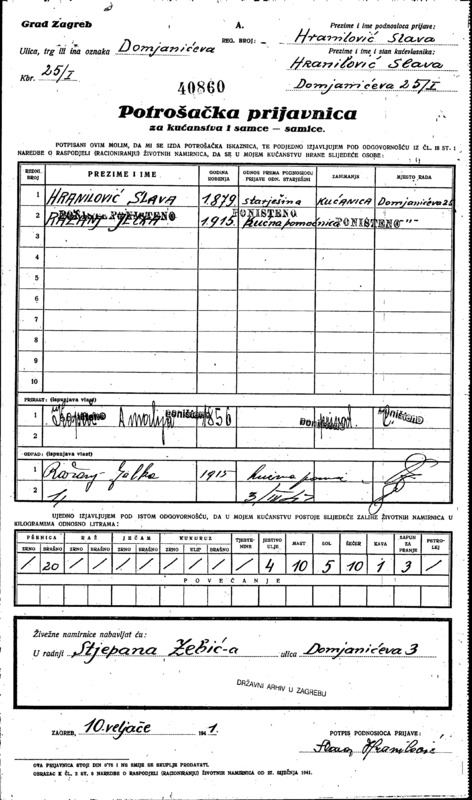 Grad Zagreb
A.
REG. BROJ:
Prezime i ime podnosioca prijave:
Hranilović Slava
Ulica, trg ili ina oznaka Domjanićeva
Prezime i ime i stan kućevlasnika:
Hranilović Slava
Kbr. 25/I
Domjanićeva 25/I
40860
Potrošačka prijavnica
za kućanstva i samce — samice.
POTPISANI OVIM MOLIM, DA MI SE IZDA POTROŠAČKA ISKAZNICA, TE PODJEDNO IZJAVLJUJEM POD ODGOVORNOŠĆU IZ ČL. 18 ST. 1
NAREDBE O RASPODJELI (RACIONIRANJU) ŽIVOTNIH NAMIRNICA, DA SE U MOJEM KUĆANSTVU HRANE SLIJEDEĆE OSOBE:
REDNI BROJ PREZIME I IME GODINA ROĐENJA ODNOS PREMA PODNOSIOCU PRIJAVE ODN. STARJEŠINI ZANIMANJE MJESTO RADA
1 HRANILOVIĆ SLAVA 1879 starješina KUĆANICA Domjanićeva 25
2 PONIŠTENO 1915. PONIŠTENO kućna pomoćnica PONIŠTENO -"-
3
4
5
6
7
8
9
10
PRIRAST: (ispunjava vlast)
1 Amalija Poništeno 1856 Poništeno
2
OTPAD: (ispunjava vlast)
1 Ražanj Jelka 1915 kućna pom.
2
UJEDNO IZJAVLJUJEM POD ISTOM ODGOVORNOŠĆU, DA U MOJEM KUĆANSTVU POSTOJE SLIJEDEĆE ZALIHE ŽIVOTNIH NAMIRNICA U
KILOGRAMIMA ODNOSNO LITRAMA:
PŠENICA RAŽ JEČAM KUKURUZ TJESTENINE JESTIVO ULJE MAST SOL ŠEĆER KAVA SAPUN ZA PRANJE PETROLEJ
ZRNO BRAŠNO ZRNO BRAŠNO ZRNO BRAŠNO ZRNO KLIP BRAŠNO
/ 20 / / / / / / / / 4 10 5 10 1 3 /
POVEĆANJE
Živežne namirnice nabavljat ću:
U radnji Stjepana Zebić-a ulica Domjanićeva 3
DRŽAVNI ARHIV U ZAGREBU
ZAGREB, 10. veljače 194 1.
POTPIS PODNOSIOCA PRIJAVE:
Slava Hranilović
OVA PRIJAVNICA STOJI DIN 0.75 I NE SMIJE SE SKUPLJE PRODAVATI.
OBRAZAC K ČL. 2 ST. 2 NAREDBE O RASPODJELI (RACIONIRANJU) ŽIVOTNIH NAMIRNICA OD 22. SIJEČNJA 1941.